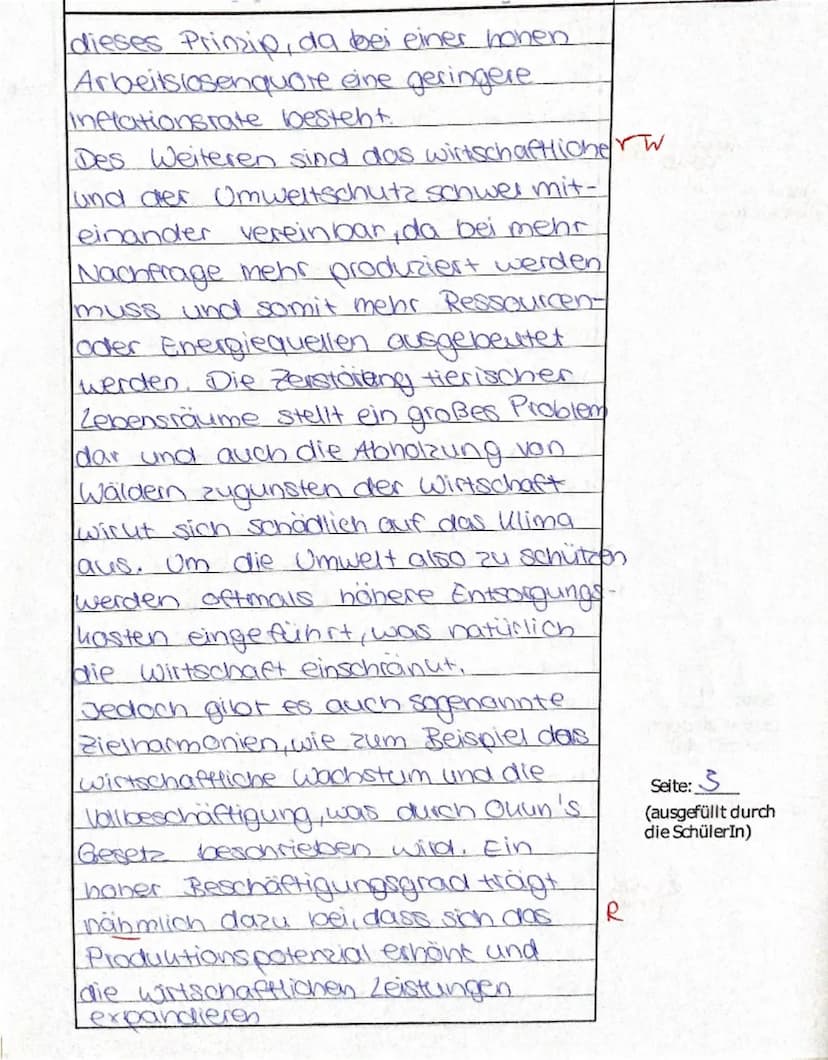 dieses Prinzip, da bei einer hohen
Arbeitslosenquote eine geringere
Inflationsrate besteht.
Des Weiteren sind das wirtschaftliche rW
und der Umweltschutz schwer mit-
einander vereinbar, da bei mehr
Nachfrage mehr produziert werden
muss und somit mehr Ressourcen-
oder Energiequellen ausgebeutet
werden. Die Zerstörung tierischer
Lebensräume stellt ein großes Problem
dar und auch die Abholzung von
Wäldern zugunsten der Wirtschaft
wirkt sich schädlich auf das Klima
aus. Um die Umwelt also zu schützen
werden oftmals höhere Entsorgungs-
kosten eingeführt, was natürlich
die Wirtschaft einschränkt.
Jedoch gibt es auch sogenannte
Zielharmonien, wie zum Beispiel das
wirtschaftliche Wachstum und die
Vollbeschäftigung, was durch Okun's
Gesetz beschrieben wird. Ein
hoher Beschäftigungsgrad trägt
nähmlich dazu bei, dass sich das R
Produktionspotenzial erhöht und
die wirtschaftlichen Leistungen
expandieren
Seite: 3
(ausgefüllt durch
die SchülerIn)